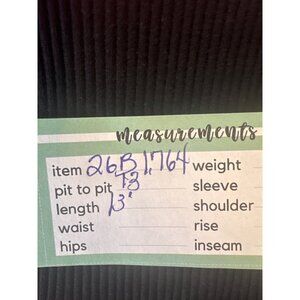 measurements
item 26B1,764 weight
pit to pit 13 sleeve
length 13" shoulder
waist rise
hips inseam